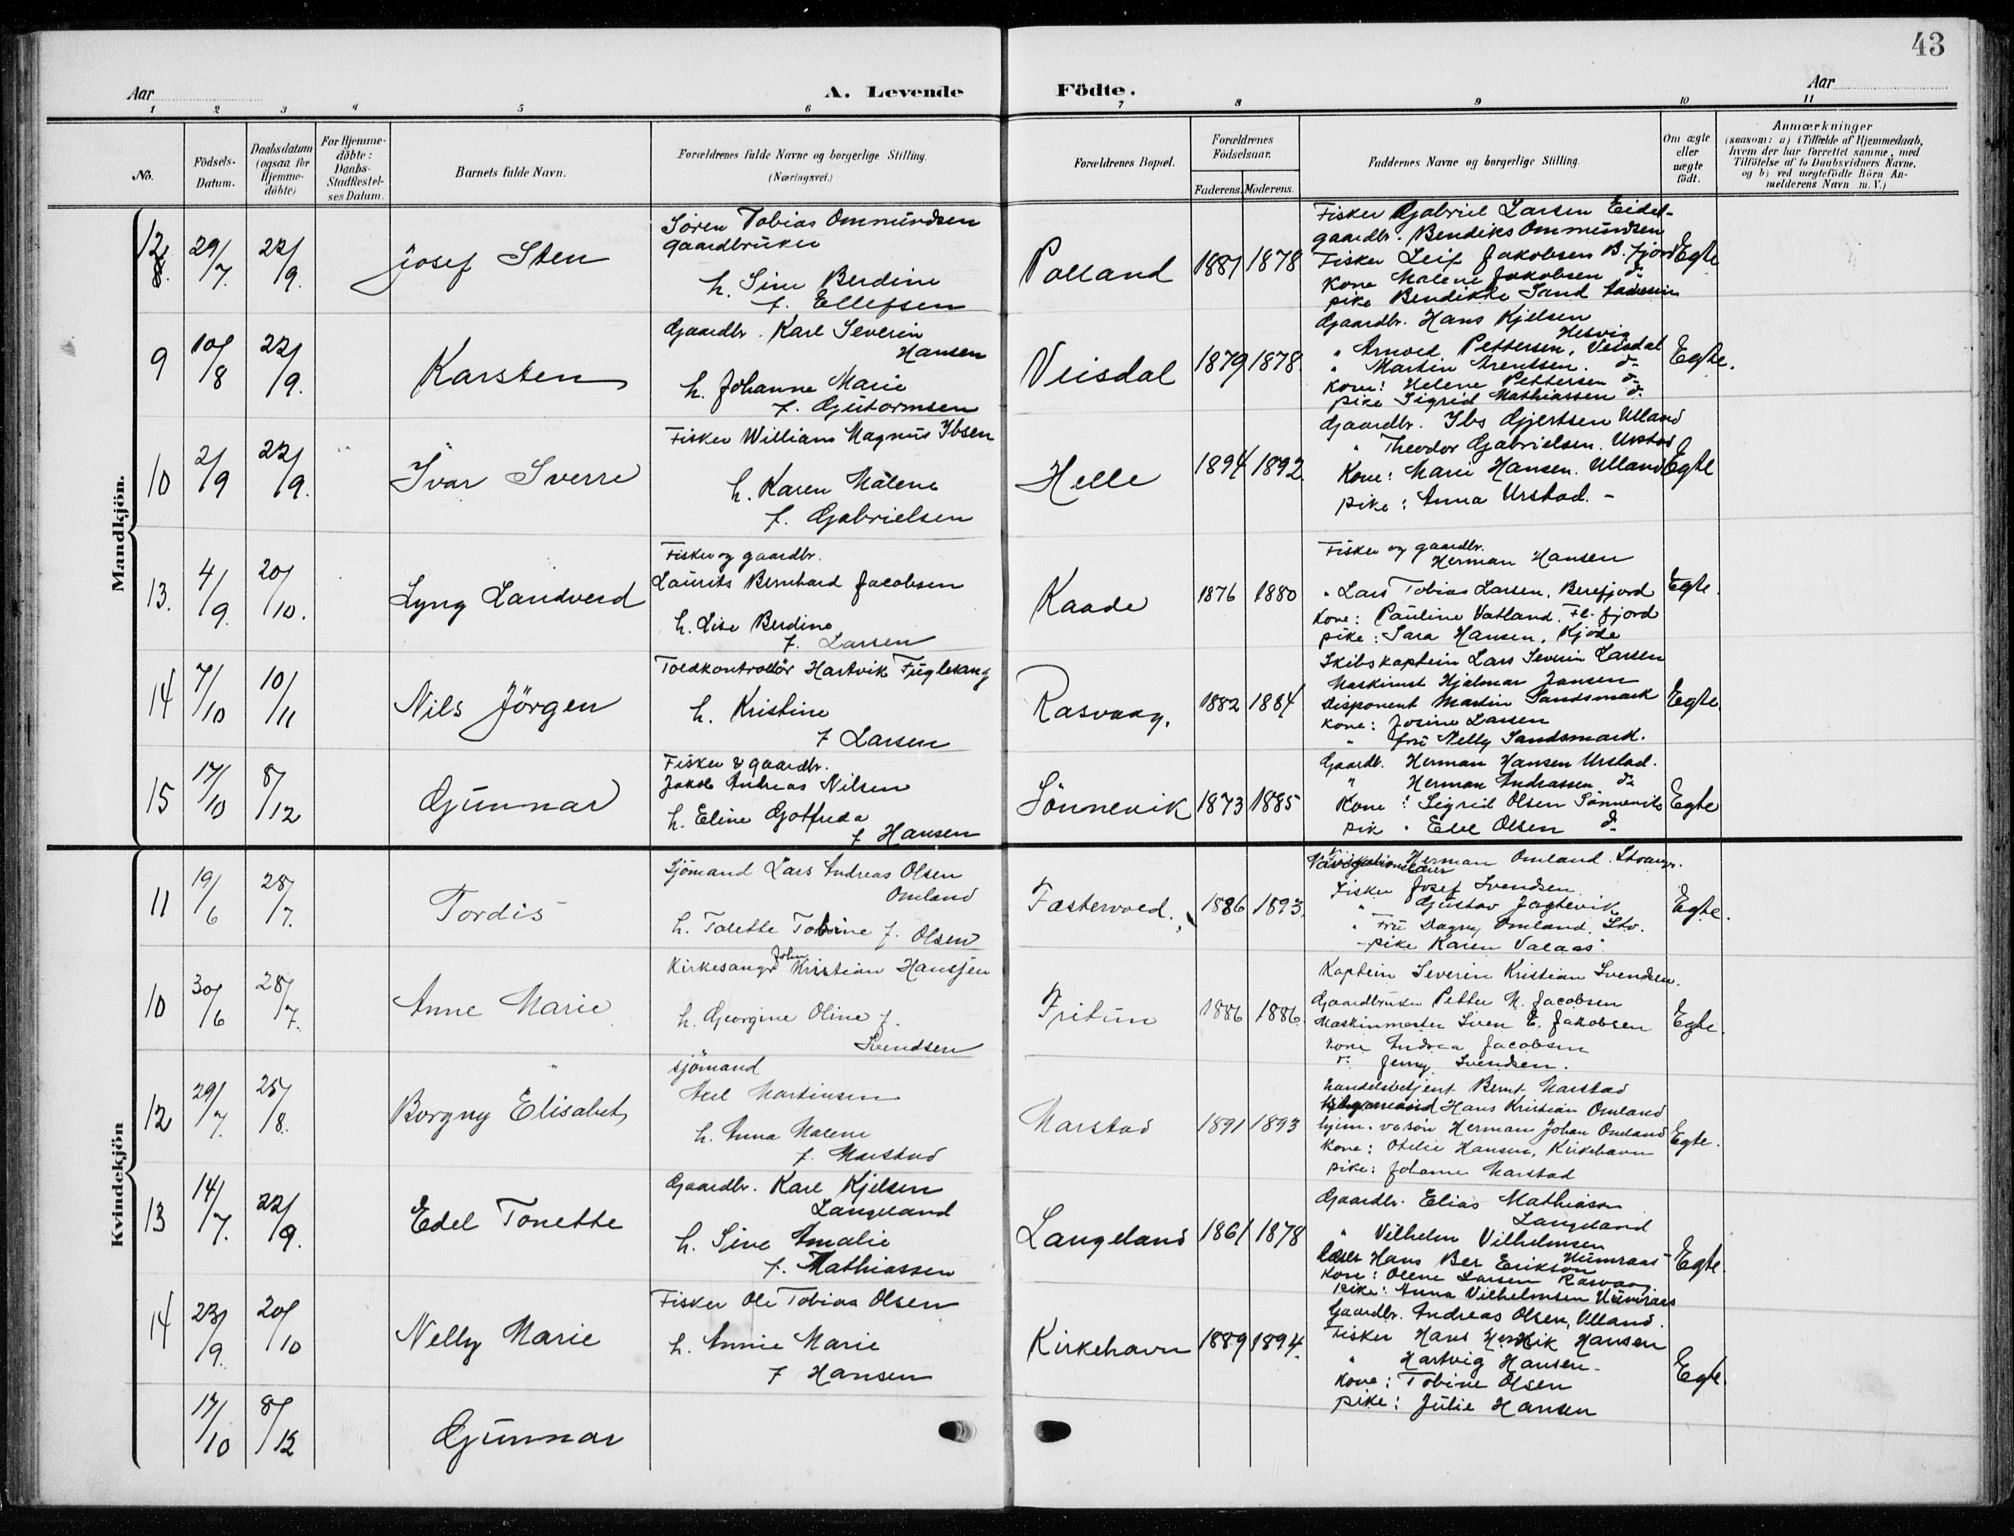 43
Aar
A. Levende Födte.
Aar
1 2 3 4 5 6 7 8 9 10 11
No.
Födsels-Datum.
Daabsdatum (ogsaa for Hjemme-döbte)
For Hjemme-döbte: Daabs-Stadfæstel-ses Datum.
Barnets fulde Navn.
Forældrenes fulde Navne og borgerlige Stilling.
(Næringsvei.)
Forældrenes Bopæl.
Forældrenes Födselsaar.
Faderens. Moderens.
Faddernes Navne og borgerlige Stilling.
Om ægte eller uægte födt.
Anmærkninger
(saasom: a) i Tilfælde af Hjemmedaab, hvem der har forrettet samme, med Tilföielse af to Daabsvidners Navne, og b) ved uægtefödte Börn An-melderens Navn m. V.)
Mandkjön.
12 29/7 22/9 Josef Sten
Sören Tobias Ommundsen
gaardbruker
h. Sine Berdine
f. Ellefsen
Polland 1881 1878
Fisker Gabriel Larsen Eidel-
gaardbr. Bendiks Ommundsen
Fisker Leif Jakobsen B. fjord
Kone Malene Jakobsen do
pike Bendikke Sand
Egte
9 10/8 22/9. Karsten
Gaardbr. Karl Severin
Hansen
h. Johanne Marie
f. Gutormsen
Veisdal 1879 1878.
Gaardbr. Hans Kjelsen
Hesvig
" Arnold Pettersen, Veisdal
" Martin Arentsen. do
Kone: Helene Pettersen do
pike Sigrid Mathiassen do
Egte.
10 2/9 22/9. Ivar Sverre
Fisker William Magnus Ibsen
h. Karen Malene
f. Gabrielsen
Helle 1894 1892
Gaardbr. Ibs Gjertsen Ulland
" Theodor Gabrielsen. Urstad
Kone: Marie Hansen. Ulland
pike: Anna Urstad. -
Egte
13. 4/9. 20/10. Lyng Landverd
Fisker og gaardbr.
Laurits Bernhard Jacobsen
h. Lise Berdine
f. Larsen
Kaade 1876 1880
Fisker og gaardbr.
Herman Hansen
" Lars Tobias Larsen, Berefjord
Kone: Pauline Vatland. Fl. fjord
pike: Sara Hansen, Kjöde
Egte.
14 7/10 10/11 Nils Jörgen
Toldkontrollör Hartvik Fuglevang
h. Kristine
f Larsen
Rasvaag. 1882 1884
Skibskaptein Lars Severin Larsen
Maskinist Hjalmar Jansen
Disponent Martin Sandsmark
Kone: Josine Larsen
" fru Nelly Sandsmark.
Egte.
15 17/10 8/12 Gunnar
Fisker & gaardbr.
Jakob Andreas Nilsen
h. Eline Gotfreda
f Hansen
Sönnevik 1873 1885
Gaardb. Herman Hansen Urstad.
" Herman Andreassen do
Kone: Sigrid Olsen Sönnevik
pik " Elve Olsen do
Egte
Kvindekjön
11 19/6 28/7. Tordis
Sjömand Lars Andreas Olsen
Omland
h. Talette Tobine f. Olsen
Fastervold. 1886 1893.
Herman Omland. Stvangr.
Fisker Josef Svendsen
" Gustav Jagtevik
" Fru Dagny Omland, Stv.
- pike Karen Valaas
Egte.
10 30/6 28/7. Anne Marie
Kirkesangr John Kristian Hanssen
h. Georgine Oline f.
Svendsen
Fritun 1886 1886
Kaptein Severin Kristian Svendsen.
Gaardbruker Petter M. Jacobsen
Maskinmester Sven E. Jakobsen
Kone Andrea Jacobsen
do Jenny Svendsen.
Egte.
12 29/7. 25/8. Borgny Elisabet
sjömand
Axel Martinsen
h. Anna Malene
f. Marstad
Marstad 1891 1893
Handelsbetjent Bernt Marstad
Hans Kristian Omland
hjem. v. sön Herman Johan Omland
Kone: Otelie Hansen, Kirkehavn
pike: Johanne Marstad
Egte.
13 14/7. 22/9. Edel Tonette
Gaardbr. Karl Kjelsen
Langeland
h. Sine Amalie
f. Mathiassen
Langeland 1861 1878
Gaardbr. Elias Mathiason
Langeland
" Vilhelm Vilhelmsen
Humraas
Lærer Hans Ber Erikson
Kone: Olene Larsen Rasvaag
pike: Anna Vilhelmsen Humraas
Egte.
14 23/9. 20/10 Nelly Marie
Fisker Ole Tobias Olsen
h. Annie Marie
f Hansen
Kirkehavn 1889 1894.
Gaardbr. Andreas Olsen, Ulland.
Fisker Hans Henrik Hansen
" Hartvig Hansen -
Kone: Tobine Olsen
pike: Julie Hansen
Egte.
17/10 8/12 Gunnar